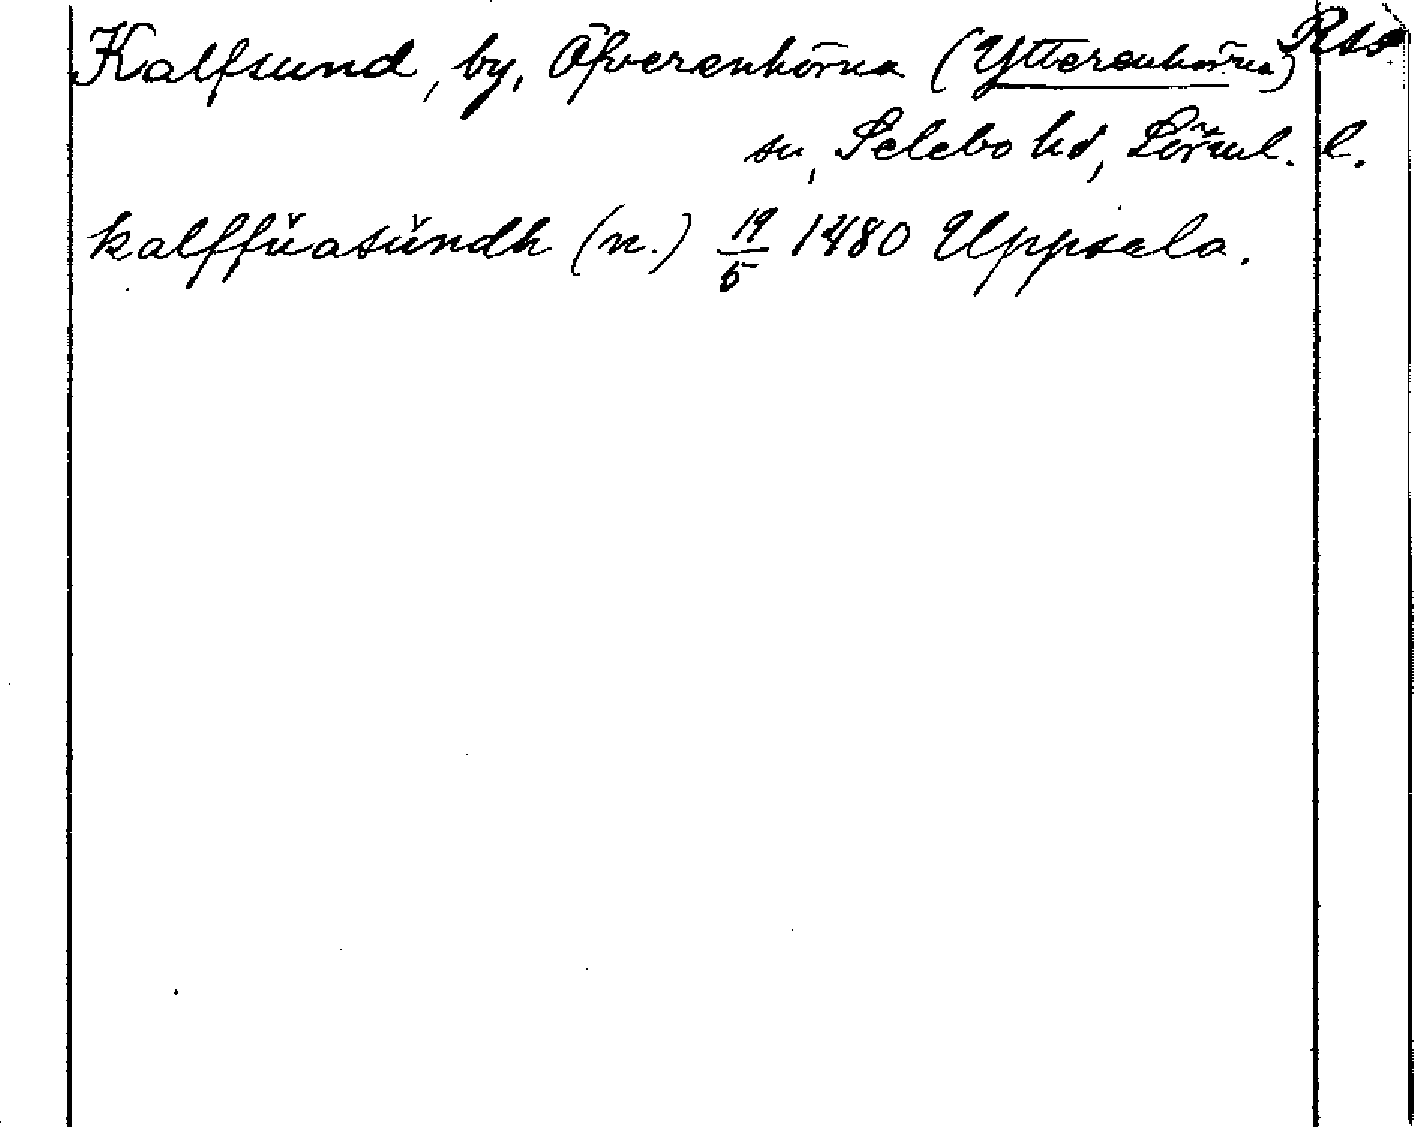 Kalfsund, by, Öfverenhörna (Ytterenhörna) Rts
sn, Selebo hd, Södml. l.
kalffüasúndh (n.) 19/5 1480 Uppsala.